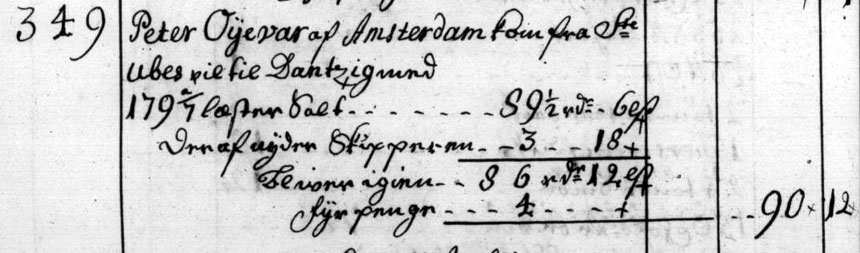 349 Peter Oÿevar af Amsterdam kom fra Ste
Ubes vil til Dantzig med
179 2/7 læster Salt - - - - - - - 89½ rdr - 6 ß
Deraf nÿder Skipperen - - 3 - - 18 +
Bliver igien - - 86 rdr 12 ß
Fÿrpenge - - - 4 - - - + - - 90 12